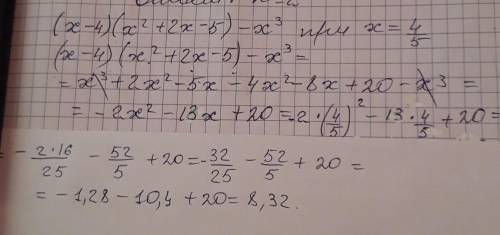 (x-4)(x²+2x-5)-x³ при x=4/5
(x-4)(x²+2x-5)-x³=
=x³+2x²-5x-4x²-8x+20-x³=
=-2x²-13x+20=-2·(4/5)²-13·4/5+20=
=-2·16/25-52/5+20=-32/25-52/5+20=
=-1,28-10,4+20=8,32.